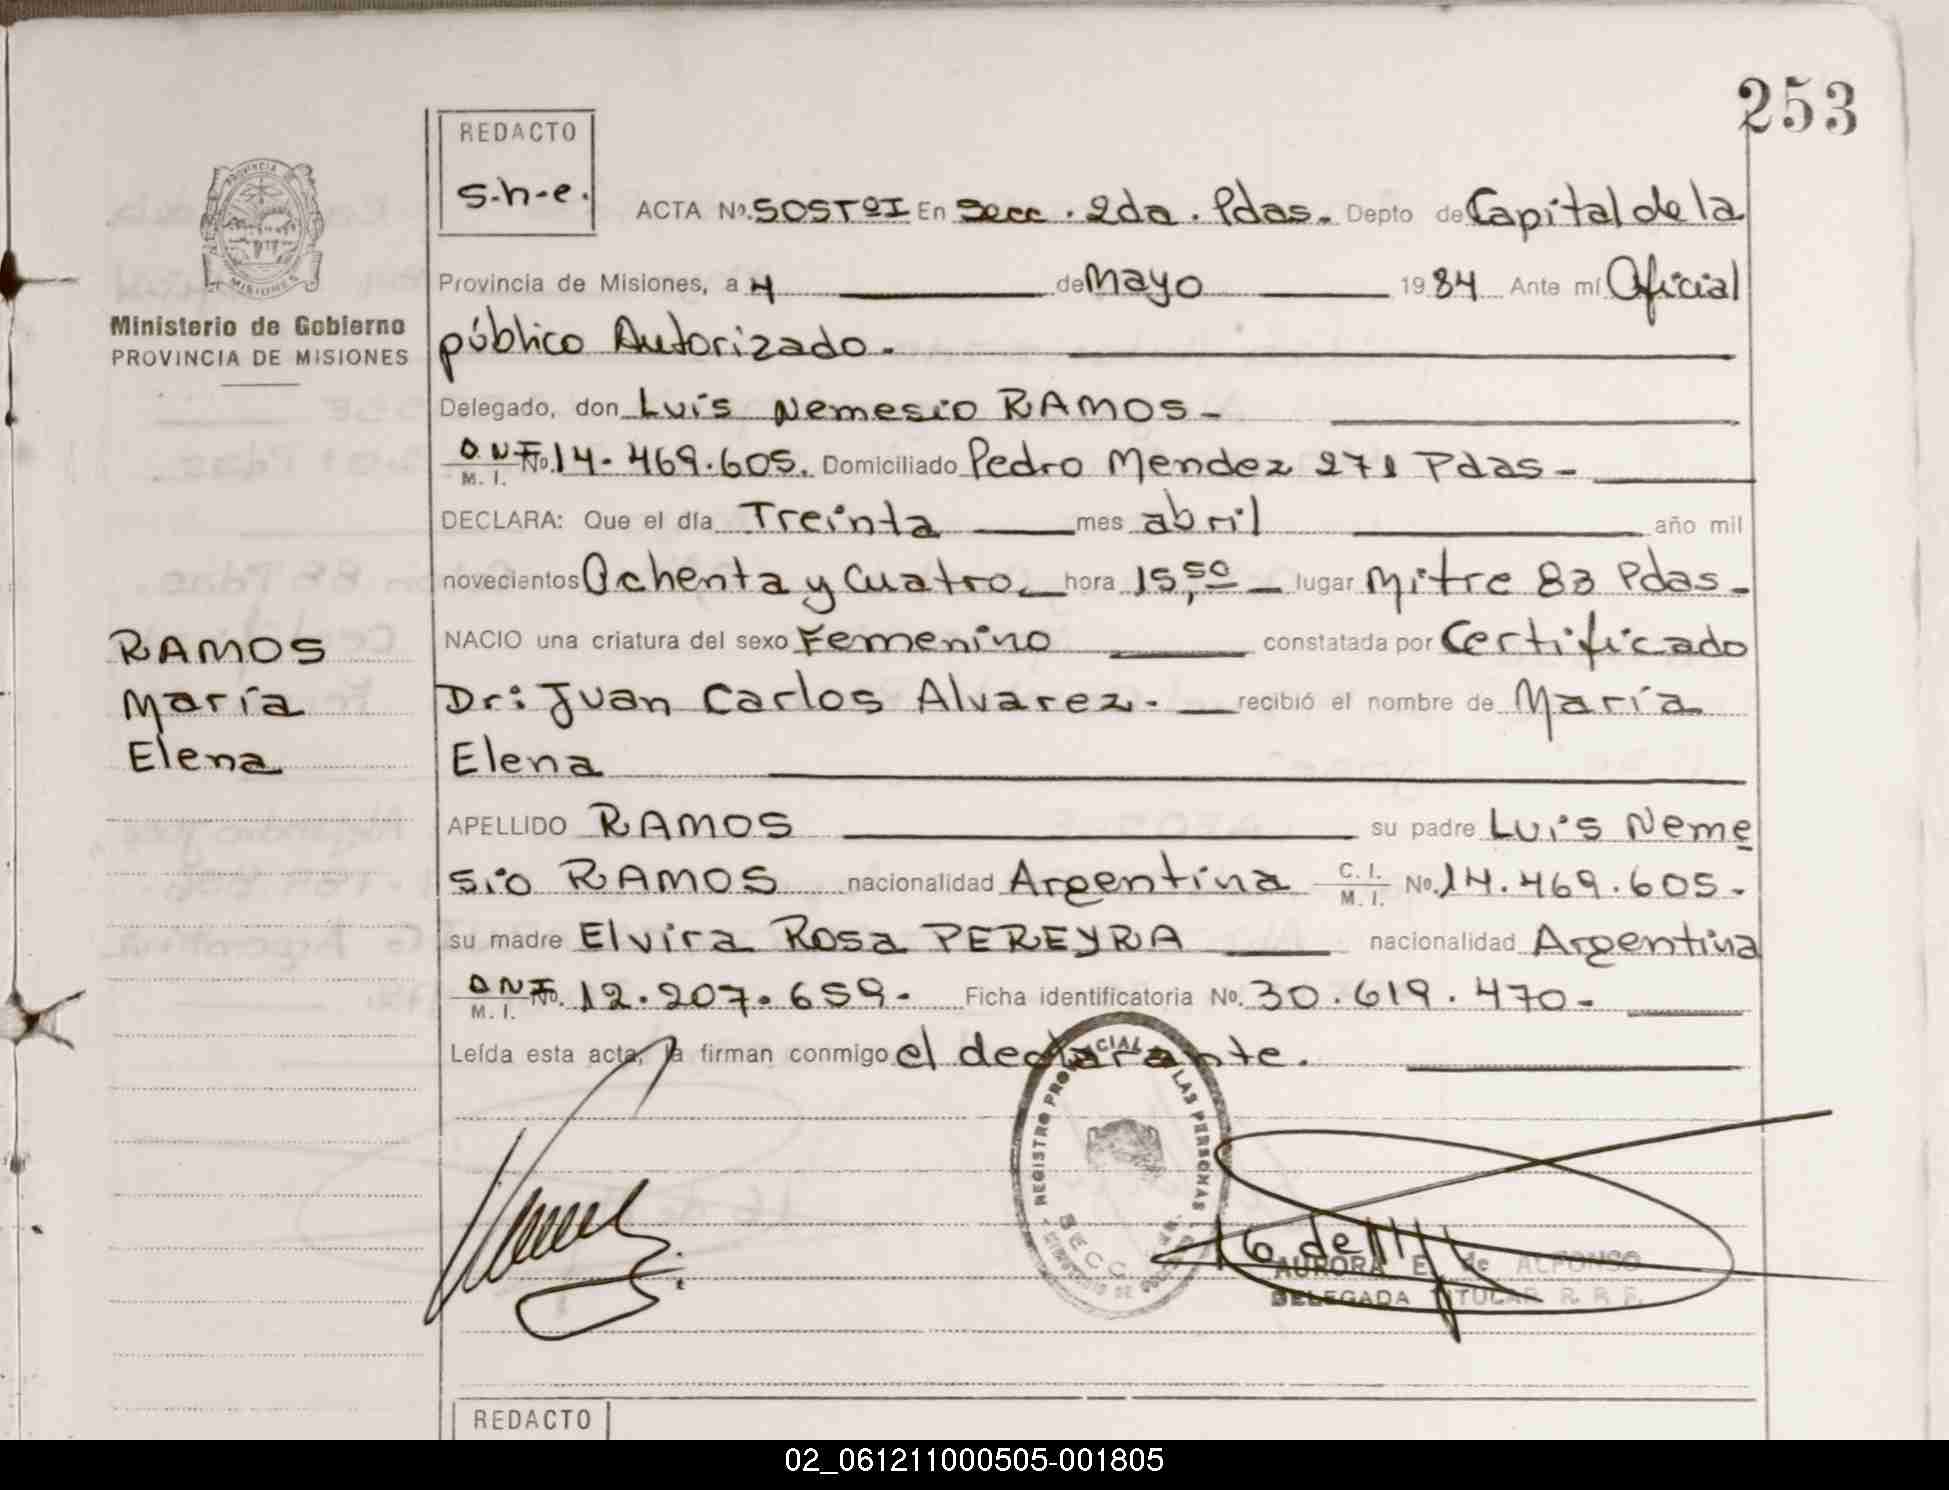 253
REDACTO
s.h.e.
ACTA No. 505 Tº I En Secc. 2da. Pdas. Depto de Capital de la
Provincia de Misiones, a 4 de Mayo 1984 Ante mí Oficial
público Autorizado.
Delegado, don Luis Nemesio RAMOS-
D N I
M. I. No. 14.469.605. Domiciliado Pedro Mendez 271 Pdas-
DECLARA: Que el día Treinta mes abril año mil
novecientos Ochenta y Cuatro hora 15,50 lugar Mitre 83 Pdas-
NACIO una criatura del sexo Femenino constatada por Certificado
Dr: Juan Carlos Alvarez.- recibió el nombre de María
Elena
APELLIDO RAMOS su padre Luis Neme
sio RAMOS nacionalidad Argentina C. I. M. I. No. 14.469.605-
su madre Elvira Rosa PEREYRA nacionalidad Argentina
D N I
M. I. No. 12.207.659- Ficha identificatoria No. 30.619.470-
Leída esta acta, la firman conmigo el declarante.
PROVINCIA
MISIONES
Ministerio de Gobierno
PROVINCIA DE MISIONES
RAMOS
María
Elena
REGISTRO PROVINCIAL DE LAS PERSONAS
SECC.
MINISTERIO DE GOBIERNO
AURORA E. de ALFONSO
DELEGADA TITULAR R. P. P.
REDACTO
02_061211000505-001805